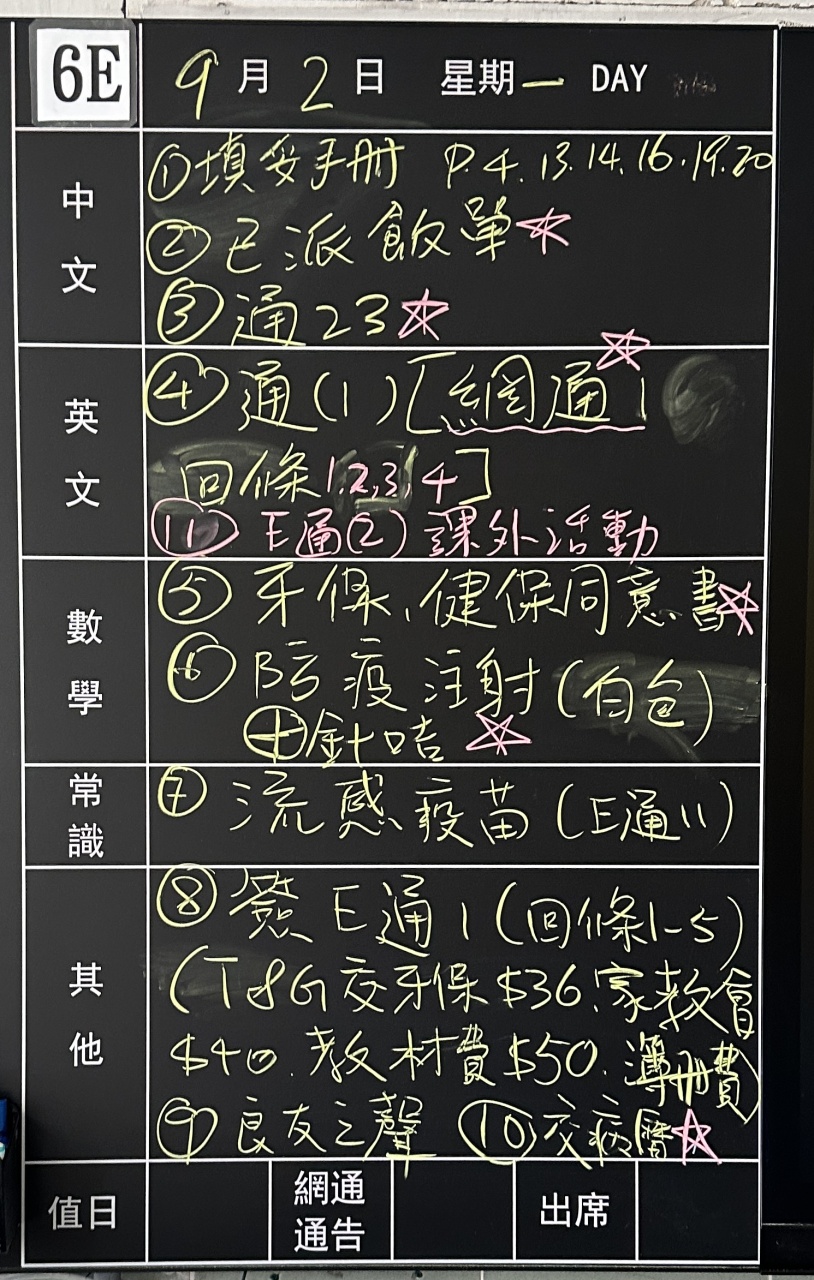 6E 9月2日 星期一 DAY
中文
①填妥手冊 P.4.13.14.16.19.20
②已派飯單☆
③通23☆
英文
④通(1)[網通1☆
回條1,2,3,4]
⑪E通(2)課外活動
數學
⑤牙保、健保同意書☆
⑥防疫注射(白色)
⊕針咭☆
常識
⑦流感疫苗(E通11)
其他
⑧簽E通1(回條1-5)
(T8G交牙保$36.家教會
$40.教材費$50.簿冊費)
⑨良友之聲 ⑩交病曆☆
值日
網通
通告
出席